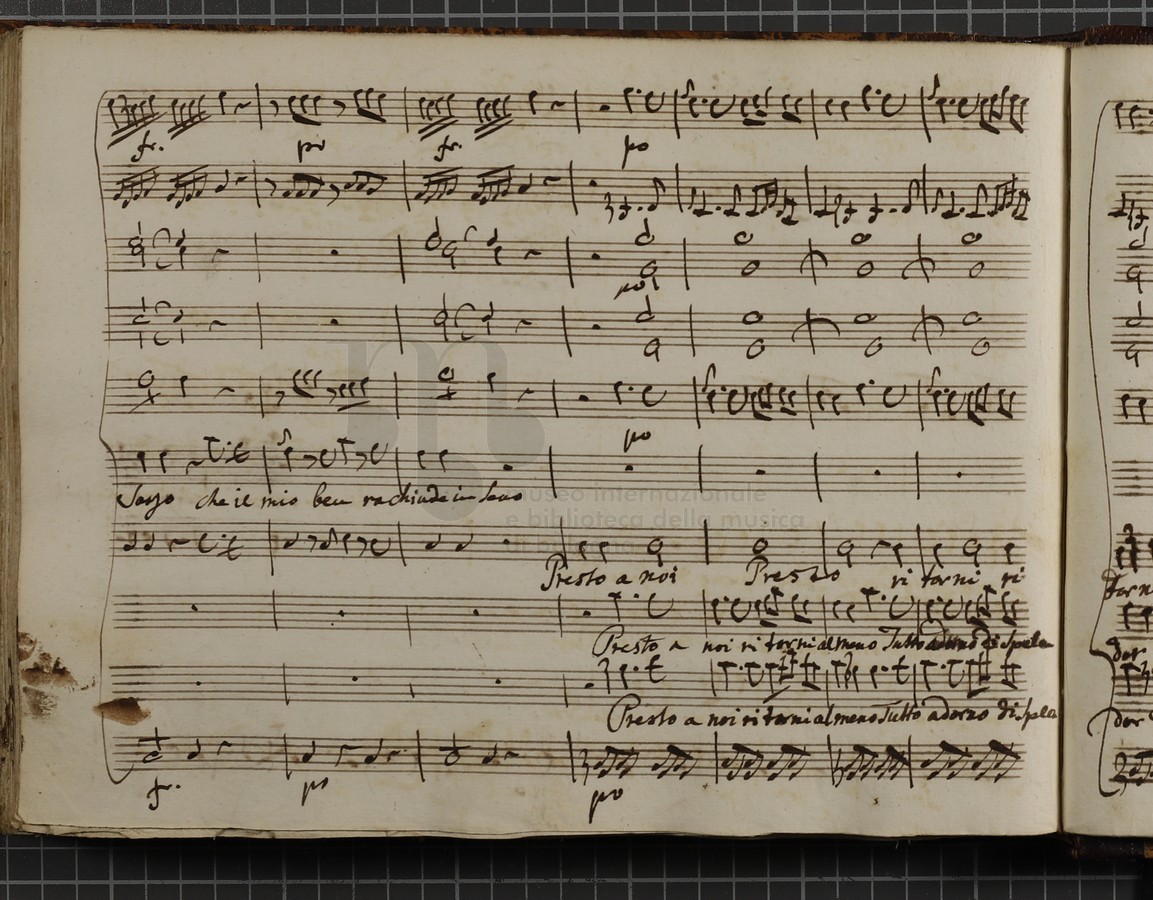 fr. po fr. po
po
po
che il mio ben rachiude in seno
museo internazionale
e biblioteca della musica
Presto a noi Presto ri torni ri
Presto a noi ri torni almeno Tutto adorno di sple
Presto a noi ri torni almeno Tutto adorno di sple
fr. po po
torn
dor
dor